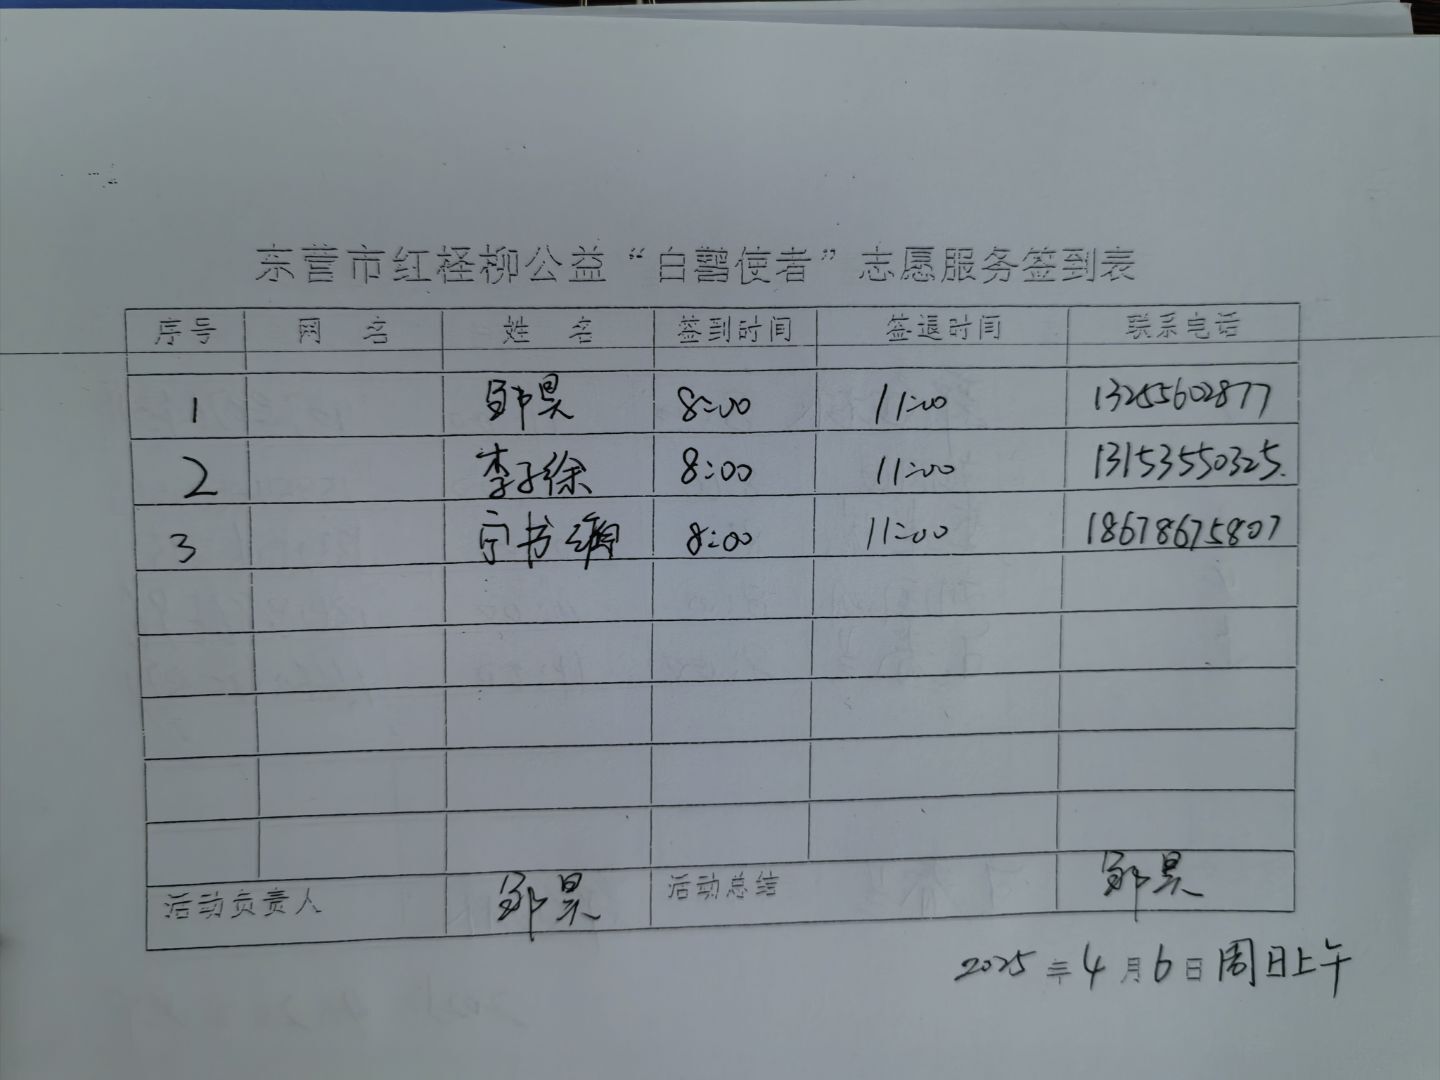 东营市红柽柳公益“白鹳使者”志愿服务签到表
序号 网 名 姓 名 签到时间 签退时间 联系电话
1 邹昊 8:00 11:00 13255602877
2 李子徐 8:00 11:00 13153550325.
3 宁书 8:00 11:00 18678675807
活动负责人 邹昊 活动总结 邹昊
2025年4月6日周日上午